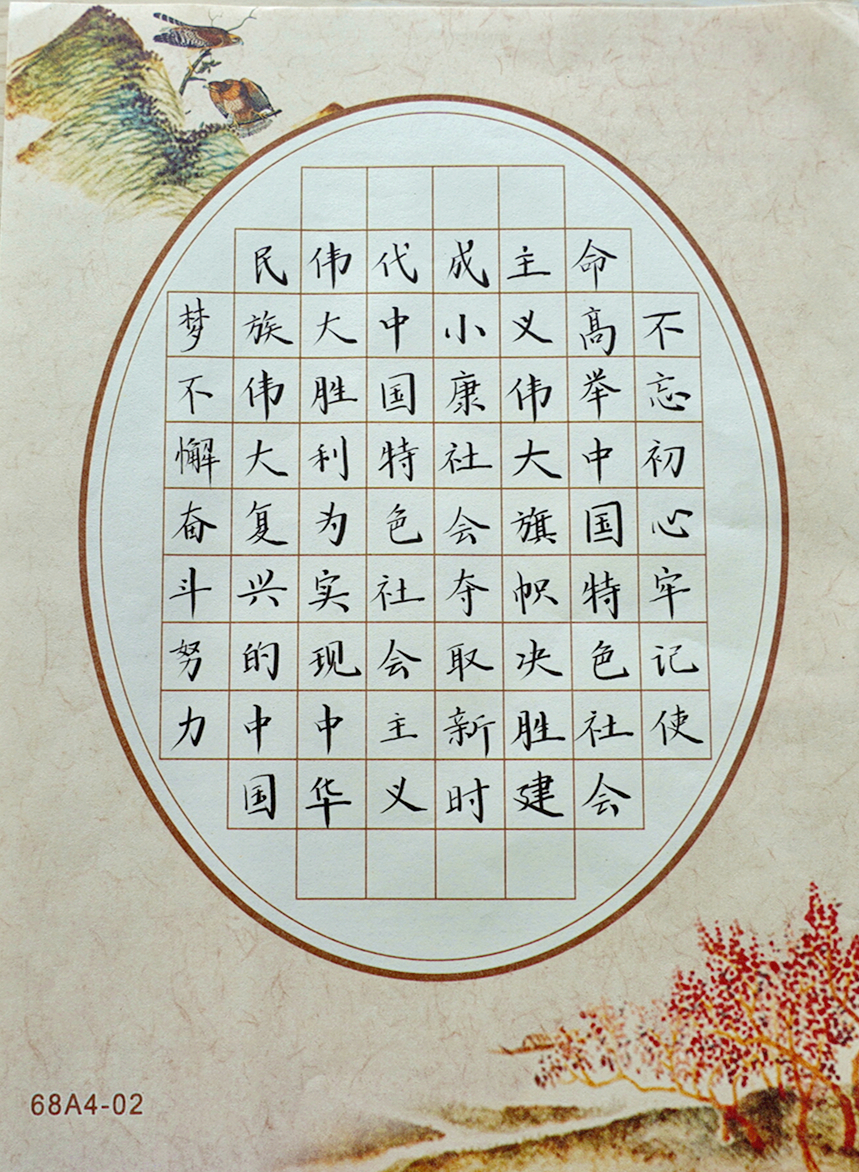 不忘初心牢记使
命高举中国特色社会
主义伟大旗帜决胜建
成小康社会夺取新时
代中国特色社会主义
伟大胜利为实现中华
民族伟大复兴的中国
梦不懈奋斗努力
68A4-02